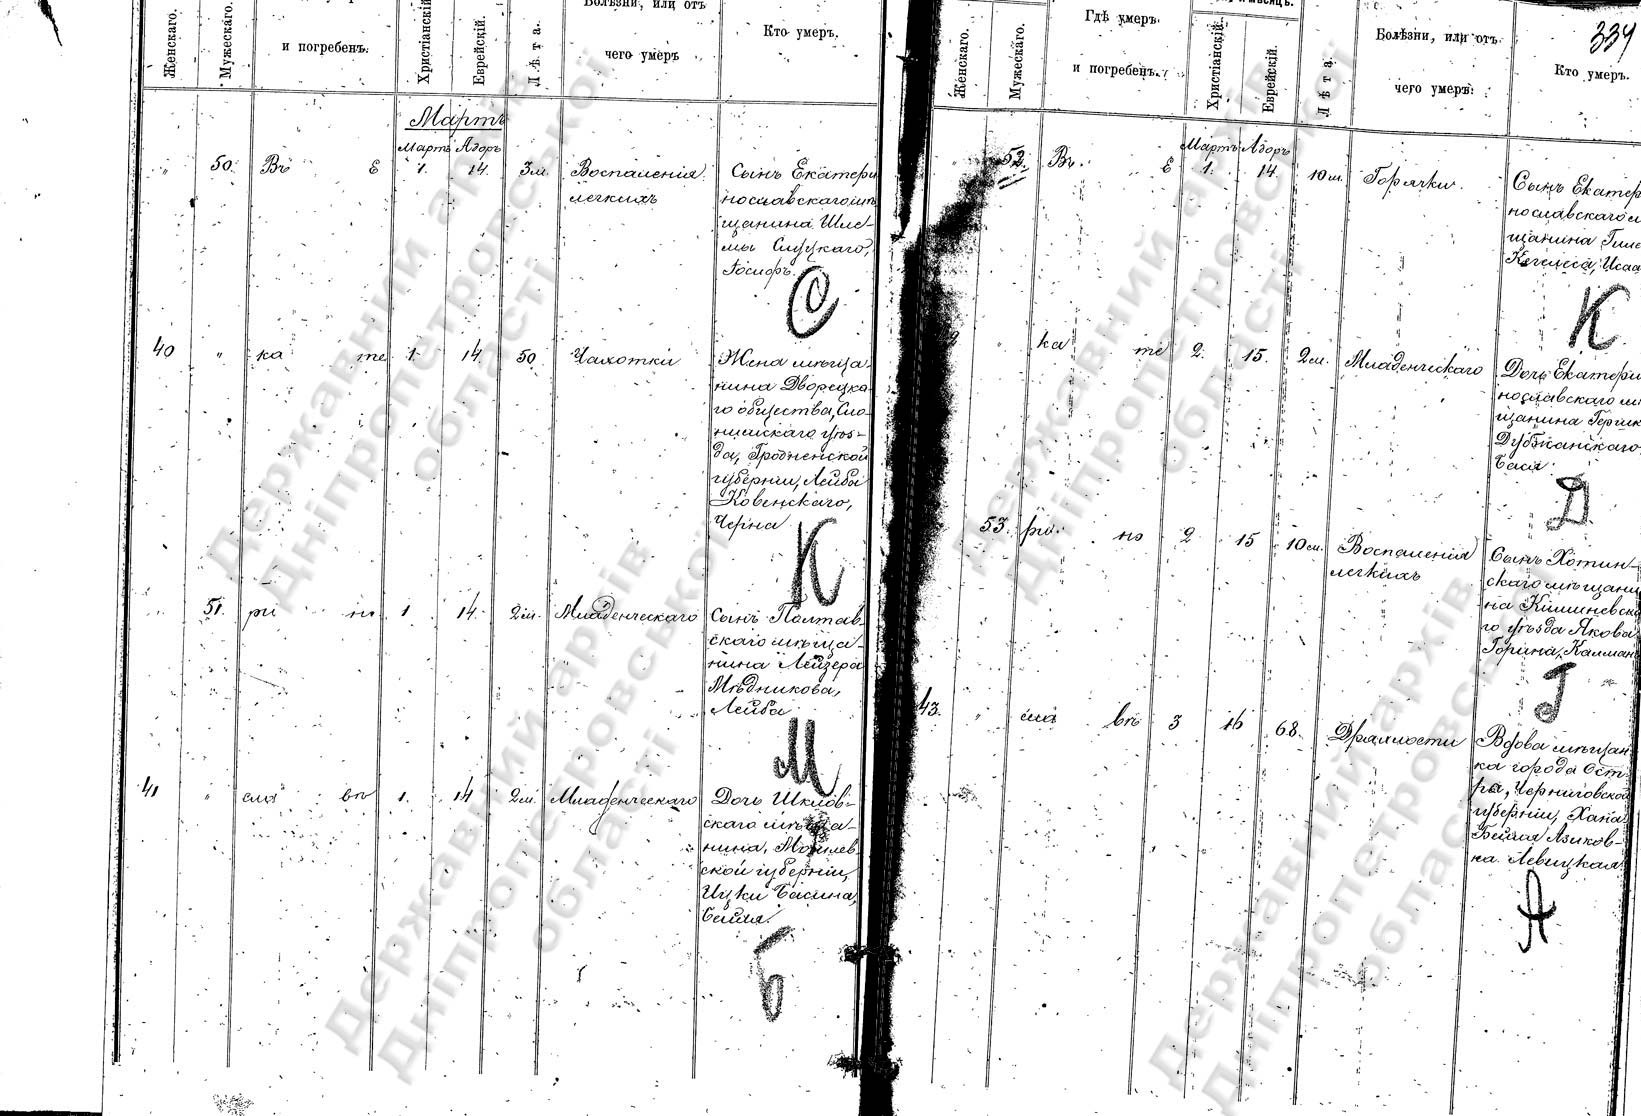 Женскаго.
Мужескаго.
и погребенъ.
Христіанскій
Еврейскій.
Лѣта.
Болѣзни, или отъ
чего умеръ
Кто умеръ.
Мартъ
Мартъ Адоръ
" 50. Въ Е 1. 14. 3 м. Воспаленія
легкихъ
Сынъ Екатери
нославскаго мѣ
щанина Шле-
мы Слуцкаго,
Іосифъ.
С
40 " ка те 1 14. 50 Чахотки
Жена мѣща-
нина Дворецка
го общества, Сло-
нимскаго уѣз-
да, Гродненской
губерніи, Лейбы
Ковенскаго,
Черна
К
51. ри но 1 14. 2 м. Младенческаго
Сынъ Полтав
скаго мѣща-
нина Лейзера
Мѣдникова,
Лейба
М
41 " сла въ 1. 14 2 м. Младенческаго
Дочь Шклов-
скаго мѣща-
нина, Могилев
ской губерніи,
Ицки Басина,
Сейля.
Б
334
Женскаго.
Мужескаго.
Гдѣ умеръ
и погребенъ.
Христіанскій
Еврейскій.
Лѣта
Болѣзни, или отъ
чего умеръ:
Кто умеръ.
Мартъ Адоръ
52. Въ Е 1. 14. 10 м. Горячки.
Сынъ Екатер
нославскаго м
щанина
Кегелеса, Исаа
К
" ка те 2. 15. 2 м. Младенческаго
Дочь Екатери
нославскаго мѣ
щанина Гершк
Дубинскаго
Бася
Д
53. ри но 2 15 10 м. Воспаленія
легкихъ
Сынъ Хотин-
скаго мѣщани
на Кишиневска
го уѣзда Якова
Горина, Калман
Г
43. " сла въ 3 16 68. Дряхлости
Вдова мѣщан
ка города Ост
ра, Черниговской
губерніи, Хана
Бейля Азиков-
на Левицкая
А
Державний архів
Дніпропетровської
області
Державний архів
Дніпропетровської
області
Державний архів
Дніпропетровської
області
Державний архів
Дніпропетровської
області